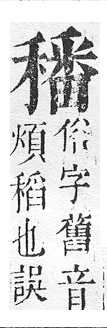 𥢌
俗字舊音
煩稻也誤